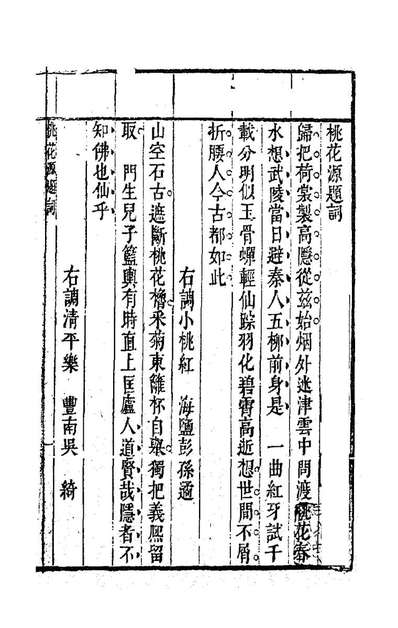 桃花源題詞
歸把荷裳製高隱從兹始烟外迷津雲中問渡桃花春
水想武陵當日避秦人五柳前身是　一曲紅牙試千
載分明似玉骨蟬輕仙踪羽化碧霄高逝想世間不屑
折腰人今古都如此
右調小桃紅　海鹽彭孫遹
山空石古遮斷桃花艣采菊東籬杯自舉獨把義熙留
取　門生兒子籃輿有時直上匡廬人道賢哉隱者不
知佛也仙乎
右調清平樂　豐南吳　綺
桃花源題詞
一